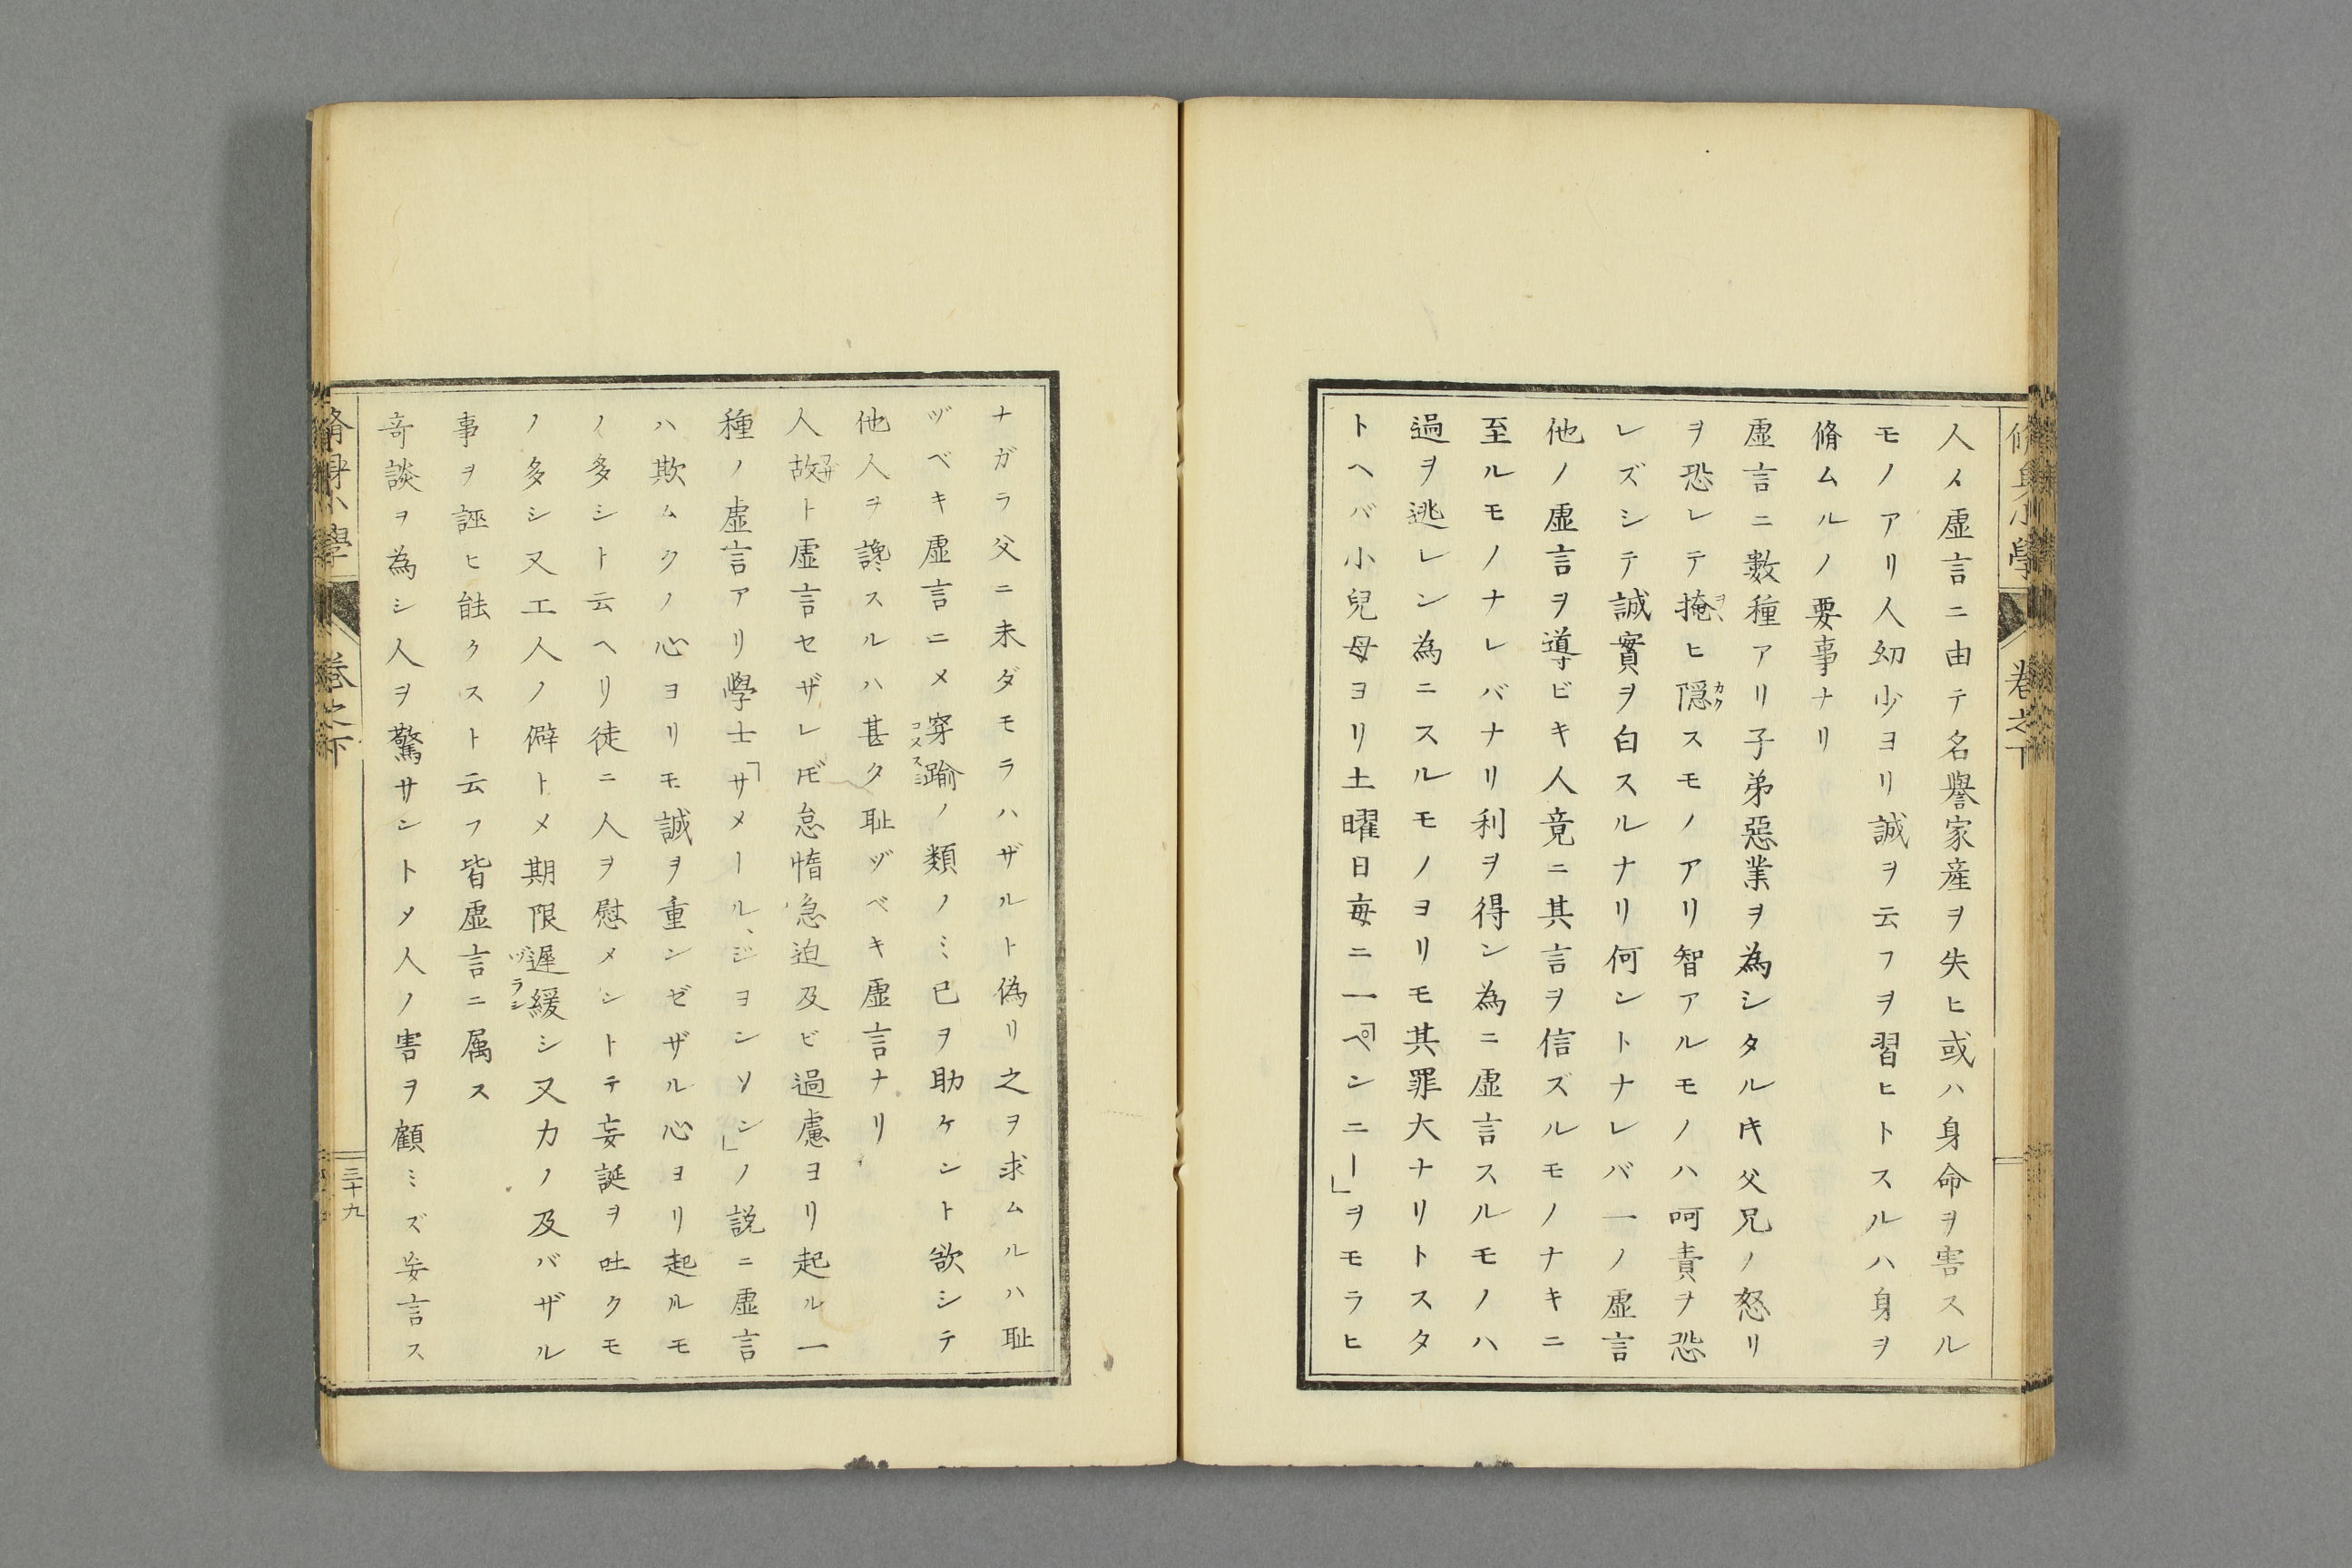 人メ虚言ニ由テ名譽家産ヲ失ヒ或ハ身命ヲ害スル
モノアリ人幼少ヨリ誠ヲ云フヲ習ヒトスルハ身ヲ
脩ムルノ要事ナリ
虚言ニ數種アリ子弟惡業ヲ為シタル𪜈父兄ノ怒リ
ヲ恐レテ掩ヒ隠スモノアリ智アルモノハ呵責ヲ恐
レズシテ誠實ヲ白スルナリ何ントナレバ一ノ虚言
他ノ虚言ヲ導ビキ人竟ニ其言ヲ信ズルモノナキニ
至ルモノナレバナリ利ヲ得ン為ニ虚言スルモノハ
過ヲ逃レン為ニスルモノヨリモ其罪大ナリトスタ
トヘバ小兒母ヨリ土曜日毎ニ一「ペンニー」ヲモラヒ
ナガラ父ニ未ダモラハザルト偽リ之ヲ求ムルハ耻
ヅベキ虚言ニメ穿踰ノ類ノミ已ヲ助ケント欲シテ
他人ヲ讒スルハ甚タ耻ヅベキ虚言ナリ
人故ト虚言セザレ𪜈怠惰急迫及ビ過慮ヨリ起ル一
種ノ虚言アリ學士「サメール、ジヨンソン」ノ説ニ虚言
ハ欺ムクノ心ヨリモ誠ヲ重ンゼザル心ヨリ起ルモ
ノ多シト云ヘリ徒ニ人ヲ慰メントテ妄誕ヲ吐クモ
ノ多シ又工人ノ僻トメ期限遲緩シ又力ノ及バザル
事ヲ誣ヒ能クスト云フ皆虚言ニ属ス
奇談ヲ為シ人ヲ驚サントメ人ノ害ヲ顧ミズ妄言ス
脩身小學 卷之下 三十九